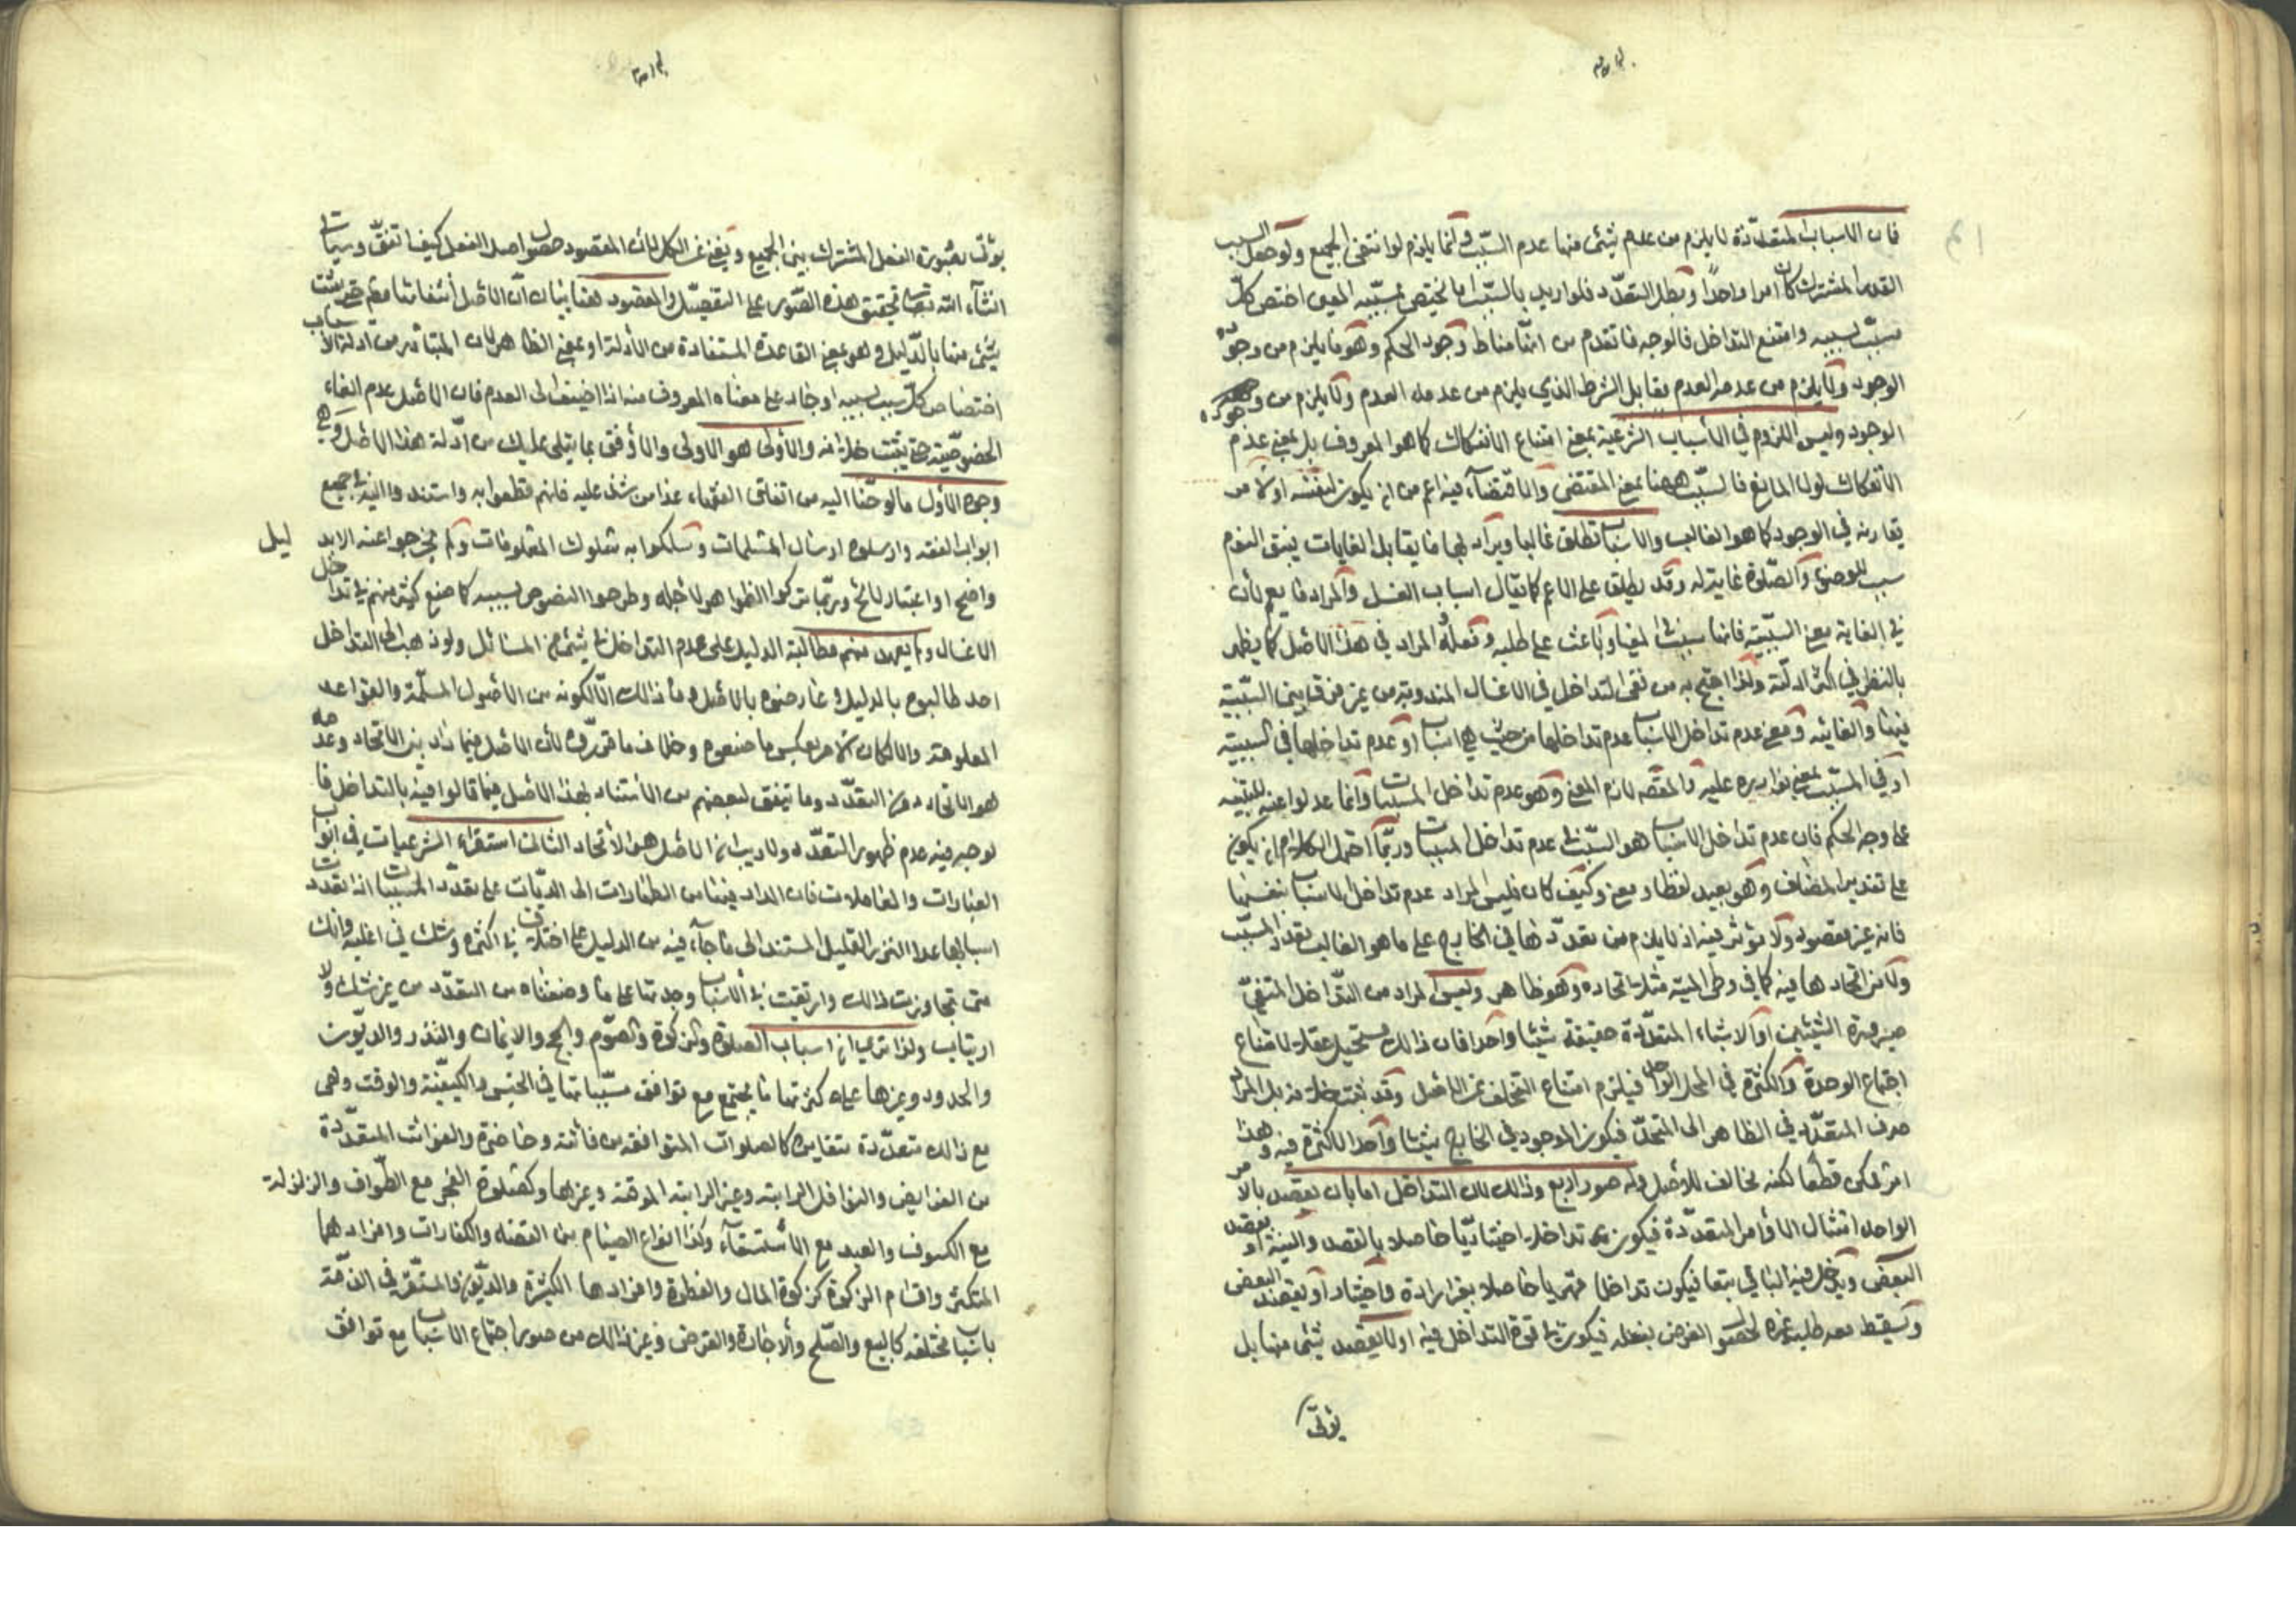 فان الاسباب المتعددة لا يلزم من عدم شئ منها عدم المسبب وانما يلزم لو انتفى الجميع ولو جعل السبب
القدر المشترك كان امرا واحدا وبطل التعدد فلو اريد بالسبب ما يختص بمسببه المعين اختص كل
سبب بمسببه وامتنع التداخل فالوجه ما تقدم من انها مناط وجود الحكم وهو ما يلزم من وجوده
الوجود ولا يلزم من عدمه العدم يقابل الشرط الذي يلزم من عدمه العدم ولا يلزم من وجوده
الوجود وليس اللزوم في الاسباب الشرعية بمعنى امتناع الانفكاك كما هو المعروف بل بمعنى عدم
الانفكاك لولا المانع فالسبب ههنا بمعنى المقتضي والاقتضاء فيه اعم من ان يكون لنفسه او لامر
يقارنه في الوجود كما هو الغالب والاسباب تطلق غالبا ويراد بها ما يقابل الغايات فيقال النوم
سبب للوضوء والصلوة غاية له وقد يطلق على الاعم كما يقال اسباب الغسل والمراد ما يعم لان
في الغاية معنى السببية فانها سبب في المغيا وباعث على طلبه وفعله المراد في هذا الاصل كما يظهر
بالنظر في اكثر ادلته ولذا احتج به من نفى التداخل في الاغسال المندوبة من غير فرق بين السببية
منها والغائية ومعنى عدم تداخل الاسباب عدم تداخلها من حيث هي اسباب او عدم تداخلها في السببية
او في المسبب بمعنى تواردها عليه والمقصد لازم المعنى وهو عدم تداخل المسببات وانما عدلوا عنه للتنبيه
على وجه الحكم فان عدم تداخل الاسباب هو السبب في عدم تداخل المسببات وربما احتمل الكلام ان يكون
على تقدير المضاف وهو بعيد لفظا ومعنى وكيف كان فليس المراد عدم تداخل الاسباب نفسها
فانه غير مقصود ولا مؤثر فيه اذ لا يلزم من تعددها في الخارج على ما هو الغالب تعدد المسبب
ولا من اتحادها فيه كما في وطي الميتة مثلا اتحاده وهو ظاهر وليس المراد من التداخل المنفي
صيرورة الشيئين او الاشياء المتعددة حقيقة شيئا واحدا فان ذلك مستحيل عقلا لامتناع
اجتماع الوحدة والكثرة في المحل الواحد فيلزم امتناع التخلف عن الاصل وقد ثبت خلافه بل المراد
صرف المتعدد في الظاهر الى المتحد فيكون الموجود في الخارج شيئا واحدا لا كثرة فيه وهذا
امر ممكن قطعا لكنه مخالف للاصل وله صور اربع وذلك لان التداخل اما بان يقصد بالامر
الواحد امتثال الاوامر المتعددة فيكون تداخلا اختياريا حاصلا بالقصد والنية او يقصد
البعض ويدخل فيه الباقي تبعا فيكون تداخلا قهريا حاصلا بغير ارادة واختيار او يقصد البعض
ويسقط معه طلب غيره لحصول الغرض بفعله فيكون في قوة التداخل فيه او لا يقصد شئ منها بل
يؤتى
يؤتى بصورة الفعل المشترك بين الجميع ويغني عن الكل لان المقصود حصول اصل الفعل كيف اتفق وسيأتي
انشاء الله تعالى تحقيق هذه الصور على التفصيل والمقصود هنا بيان ان الاصل انتفاءها حتى يثبت
شئ منها بالدليل وهو بمعنى القاعدة المستفادة من الادلة او بمعنى الظاهر لان المتبادر من ادلة الاسباب
اختصاص كل سبب بمسببه او جار على معناه المعروف منه اذا اضيف الى العدم فان الاصل عدم الغاء
الخصوصية حتى يثبت خلافه والاولى هو الاولى والاوفق بما يتلى عليك من ادلة هذا الاصل وهي
وجوه الاول ما لوحنا اليه من اتفاق الفقهاء عدا من شذ عليه فانهم قطعوا به واستندوا اليه في جميع
ابواب الفقه وارسلوه ارسال المسلمات وسلكوا به سلوك المعلومات ولم يخرجوا عنه الا بدليل
واضح او اعتبار لائح وربما تركوا الظواهر لاجله وطرحوا النصوص بسببه كما صنع كثير منهم في تداخل
الاغسال ولم يعهد منهم مطالبة الدليل على عدم التداخل في شئ من المسائل ولو ذهب الى التداخل
احد طالبوه بالدليل وعارضوه بالاصل وما ذلك الا لكونه من الاصول المسلمة والقواعد
المعلومة والا لكان الامر بعكس ما صنعوه وخلاف ما قرروه لان الاصل فيما دار بين الاتحاد وعدمه
هو الاتحاد دون التعدد وما يتفق لبعضهم من الاستناد لهذا الاصل فيما قالوا فيه بالتداخل فا
لوجه فيه عدم ظهور التعدد ولا ريب ان الاصل هو الاتحاد الثاني استقراء الشرعيات في ابواب
العبادات والمعاملات فان المدار فيها من الطهارات الى الديات على تعدد المسببات اذا تعددت
اسبابها عدا النزر القليل المستند الى ما جاء فيه من الدليل على اختلاف في اكثره وشك في اغلبه وانك
متى تجاوزت ذلك وارتقيت في الاسباب وجدتها على ما وصفناه من التعدد من غير شك ولا
ارتياب ولذا ترى ان اسباب الصلوة والزكوة والصوم والحج والايمان والنذر والديون
والحدود وغيرها على كثرتها ما يجتمع مع توافق مسبباتها في الجنس والكيفية والوقت وهي
مع ذلك متعددة متغايرة كالصلوات المتوافقة من فائتة وحاضرة والفوائت المتعددة
من الفرايض والنوافل الراتبة وغير الراتبة الموقتة وغيرها وكصلوة الفجر مع الطواف والزلزلة
مع الكسوف والعيد مع الاستسقاء وكذا انواع الصيام من القضاء والكفارات وافرادهما
المتكثرة واقسام الزكوة كزكوة المال والفطرة وافرادها الكثيرة والديون المستقرة في الذمة
باسباب مختلفة كالبيع والصلح والاجارة والقرض وغير ذلك من صور اجتماع الاسباب مع توافق